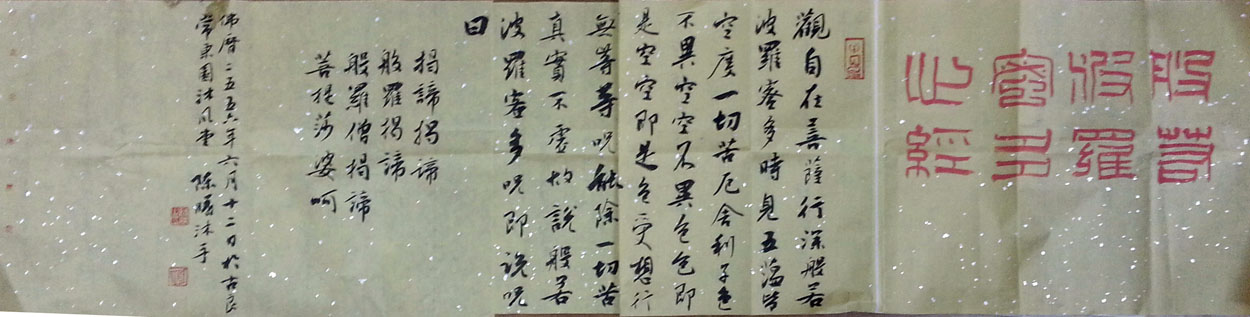 般若
波羅
蜜多
心經
觀自在菩薩行深般若
波羅蜜多時見五蘊皆
空度一切苦厄舍利子色
不異空空不異色色即
是空空即是色受想行
無等等呪能除一切苦
真實不虛故說般若
波羅蜜多呪即說呪
曰
揭諦揭諦
般羅揭諦
般羅僧揭諦
菩提莎婆呵
佛曆二五五六年六月十二日於古良
常東園沐風堂 陳曦沐手